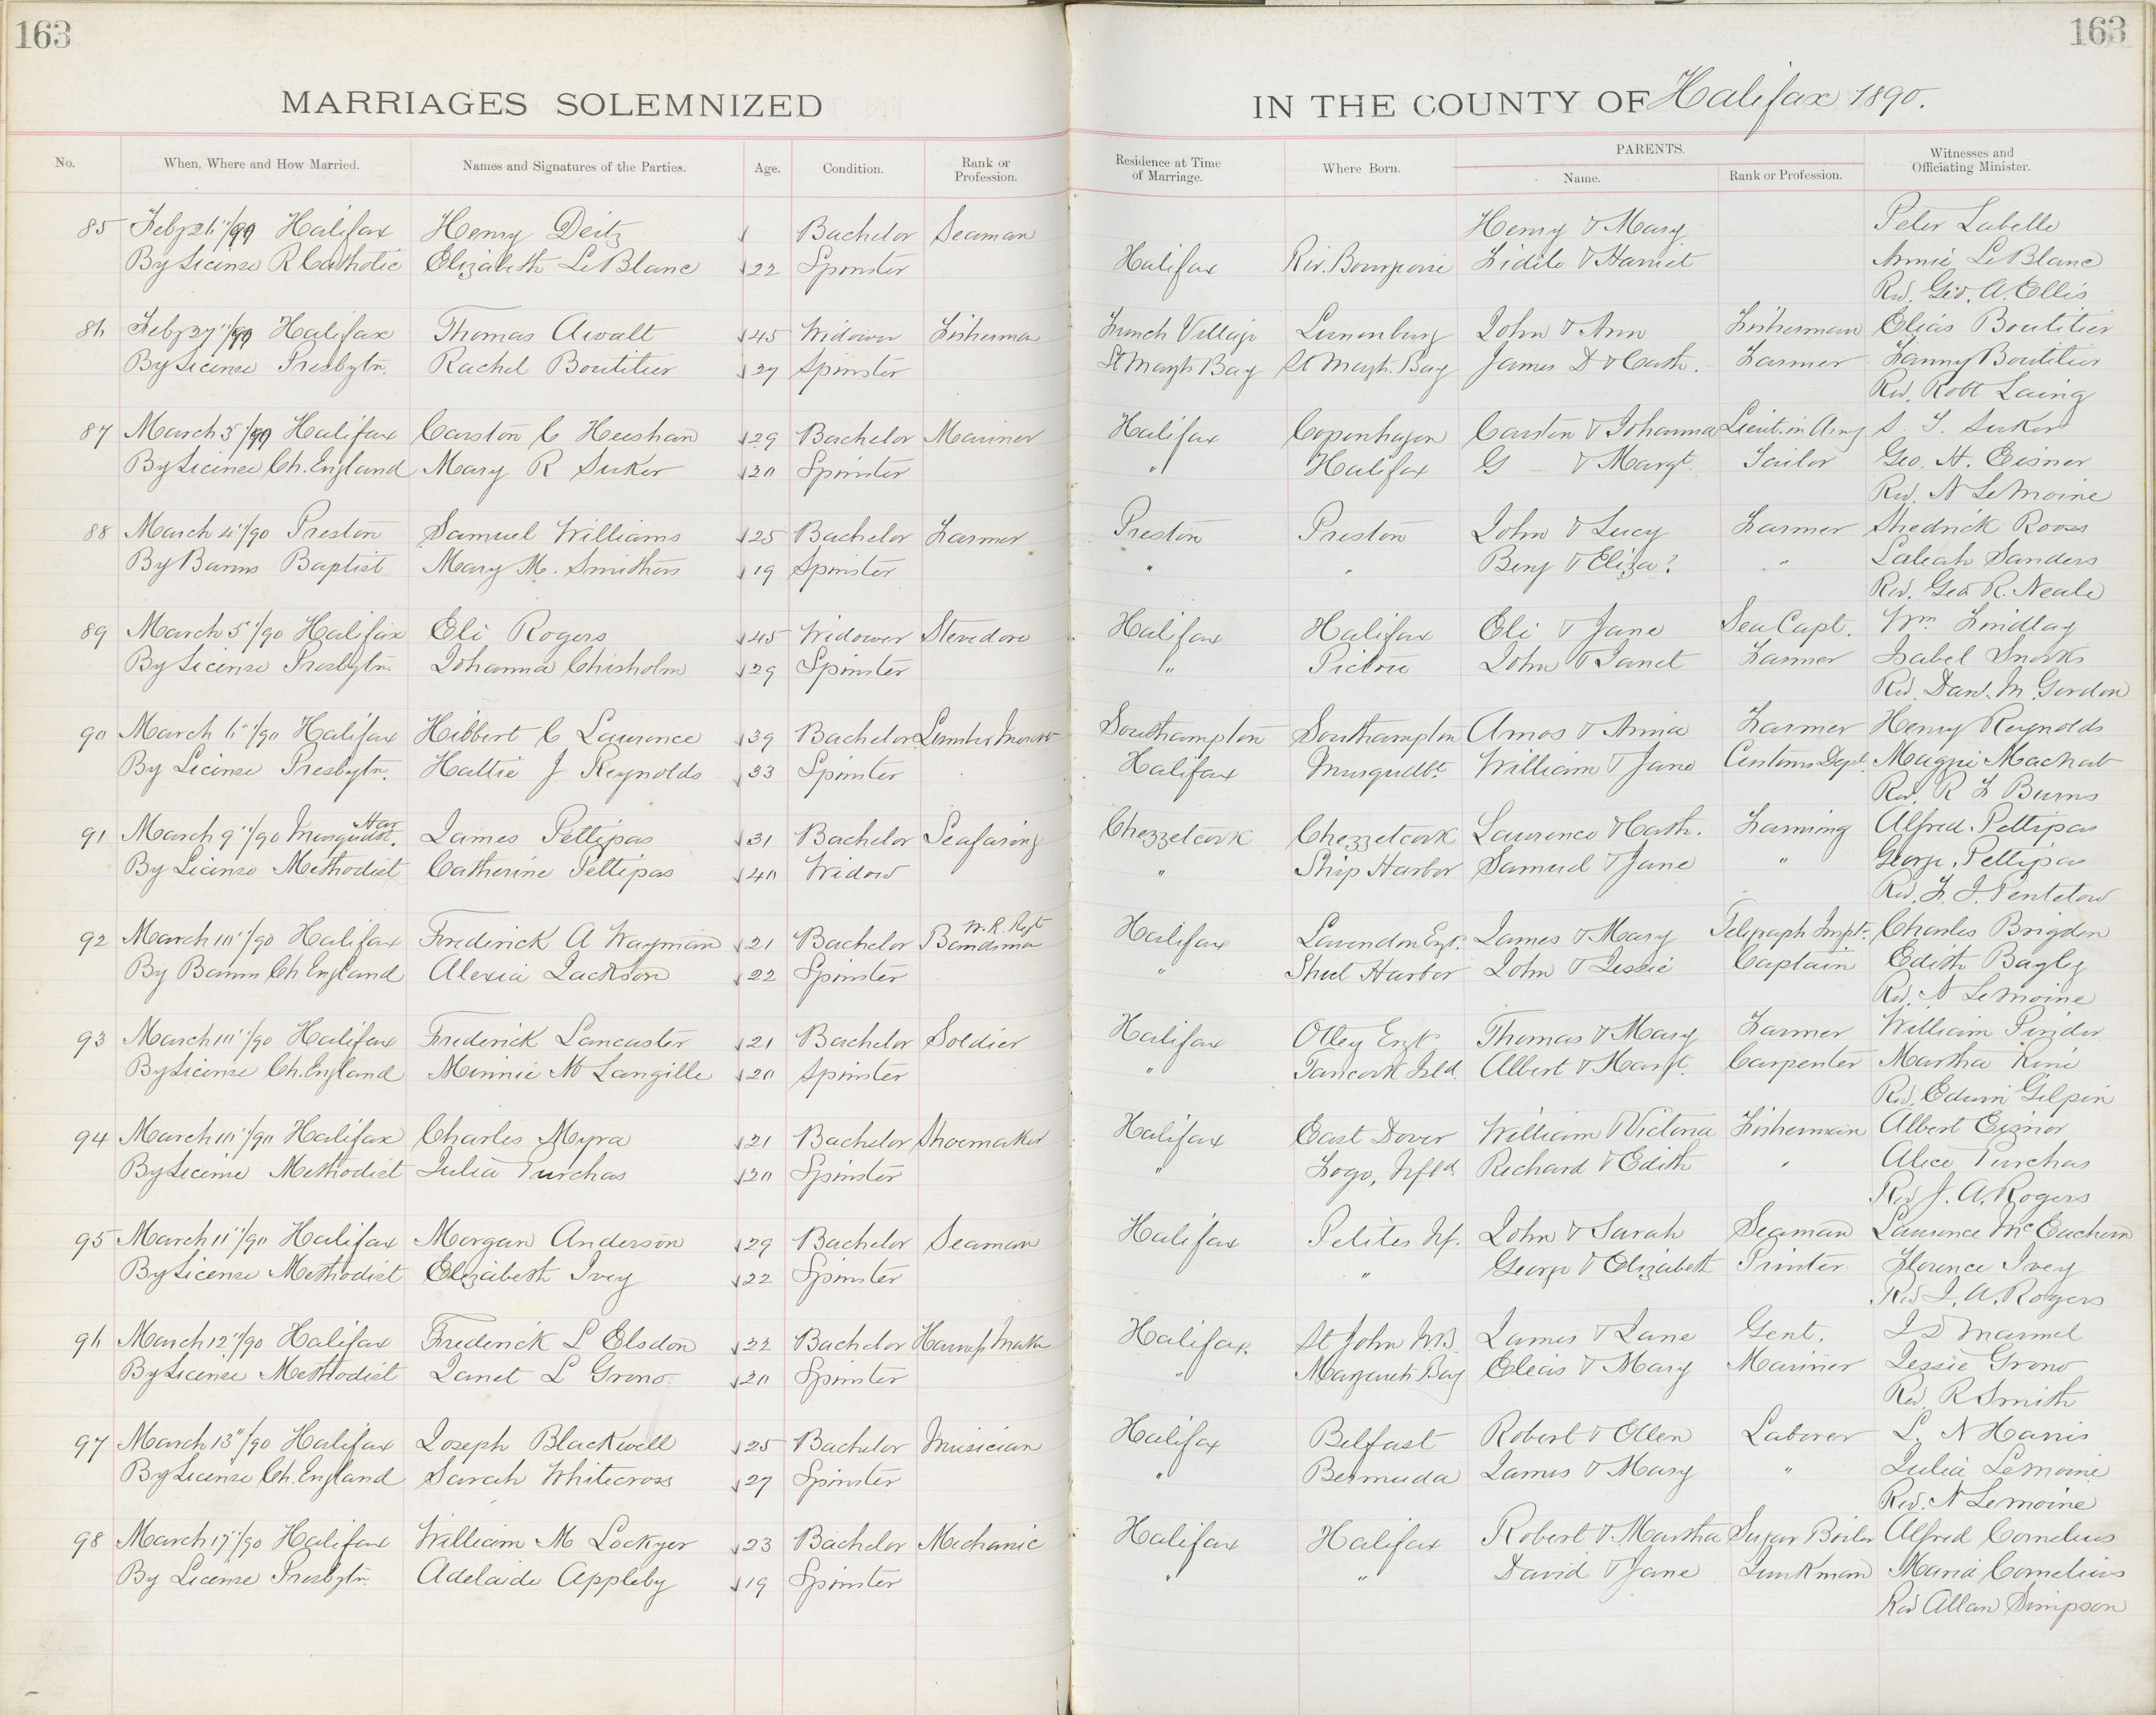 163
163
MARRIAGES SOLEMNIZED
IN THE COUNTY OF Halifax 1890.
No. When, Where and How Married. Names and Signatures of the Parties. Age. Condition. Rank or Profession. Residence at Time of Marriage. Where Born. PARENTS. Name. Rank or Profession. Witnesses and Officiating Minister.
85 Halifax Henry Deitz Bachelor Seaman Henry & Mary Peter Labelle
By License R Catholic Elizabeth LeBlanc 22 Spinster Halifax Riv. Bourgeoise Fidile & Harriet Annie LeBlanc
Rev. Geo. A. Ellis
86 Feby 27"/90 Halifax Thomas Awalt 45 Widower Fisherman French Village Lunenburg John & Ann Fisherman Elias Boutilier
By License Presbytn. Rachel Boutilier 27 Spinster St Margts Bay St Margts. Bay James D & Cath. Farmer Fanny Boutilier
Rev. Robt Laing
87 March 5"/90 Halifax Carston C Heeshan 29 Bachelor Mariner Halifax Copenhagen Carsten & Johanna Lieut. in Army S. T. Suker
By License Ch. England Mary R Suker 20 Spinster " Halifax G — & Margt. Tailor Geo. H. Eisner
Rev. N LeMoine
88 March 4"/90 Preston Samuel Williams 25 Bachelor Farmer Preston Preston John & Lucy Farmer Shedrick Rooss
By Banns Baptist Mary M. Smithers 19 Spinster " " Benj & Eliza? " Saleah Sanders
Rev. Geo R. Neale
89 March 5"/90 Halifax Eli Rogers 45 Widower Stevedore Halifax Halifax Eli & Jane Sea Capt. Wm Findlay
By License Presbytn. Johanna Chisholm 29 Spinster " Pictou John & Janet Farmer Isabel Snooks
Rev. Danl. M. Gordon
90 March 6"/90 Halifax Hibbert C Laurence 39 Bachelor Lumber Southampton Southampton Amos & Anna Farmer Henry Reynolds
By License Presbytn. Hattie J Reynolds 33 Spinster Halifax Musquodbt. William & Jane Customs Dept. Maggie Macnab
Rev. R F Burns
91 March 9"/90 Musquodbt. Har James Pettipas 31 Bachelor Seafaring Chezzetcook Chezzetcook Laurence & Cath. Farming Alfred Pettipas
By License Methodist Catherine Pettipas 40 Widow " Ship Harbor Samuel & Jane " George Pettipas
Rev. F. J. Pentelow
92 March 10"/90 Halifax Frederick A Wayman 21 Bachelor W. R. Regt Bandsman Halifax Lavendon Eng. James & Mary Telegraph Inspt. Charles Brigden
By Banns Ch England Alexia Jackson 22 Spinster " Sheet Harbor John & Jessie Captain Edith Bagley
Rev. N LeMoine
93 March 10"/90 Halifax Frederick Lancaster 21 Bachelor Soldier Halifax Otley Eng. Thomas & Mary Farmer William Pinder
By License Ch. England Minnie M Langille 20 Spinster " Tancook Isld. Albert & Margt. Carpenter Martha King
Rev. Edwin Gilpin
94 March 10"/90 Halifax Charles Myra 21 Bachelor Shoemaker Halifax East Dover William & Victoria Fisherman Albert Eisnor
By License Methodist Julia Purchas 20 Spinster " Fogo, Nfld. Richard & Edith " Alice Purchas
Rev J. A. Rogers
95 March 11"/90 Halifax Morgan Anderson 29 Bachelor Seaman Halifax Petites Nf. John & Sarah Seaman Laurence McEachern
By License Methodist Elizabeth Ivey 22 Spinster " " George & Elizabeth Printer Florence Ivey
Rev J. A. Rogers
96 March 12"/90 Halifax Frederick L Elsdon 22 Bachelor Harness Maker Halifax St John N.B. James & Jane Gent. J D Marmel
By License Methodist Janet L Grono 20 Spinster " Margarets Bay Elias & Mary Mariner Jessie Grono
Rev. R Smith
97 March 13"/90 Halifax Joseph Blackwell 25 Bachelor Musician Halifax Belfast Robert & Ellen Laborer L. N Harris
By License Ch. England Sarah Whitecross 27 Spinster " Bermuda James & Mary " Julia LeMoine
Rev. N LeMoine
98 March 17"/90 Halifax William M Lockyer 23 Bachelor Mechanic Halifax Halifax Robert & Martha Sugar Boiler Alfred Cornelius
By License Presbytn Adelaide Appleby 19 Spinster " " David & Jane Junkman Maria Cornelius
Rev Allan Simpson